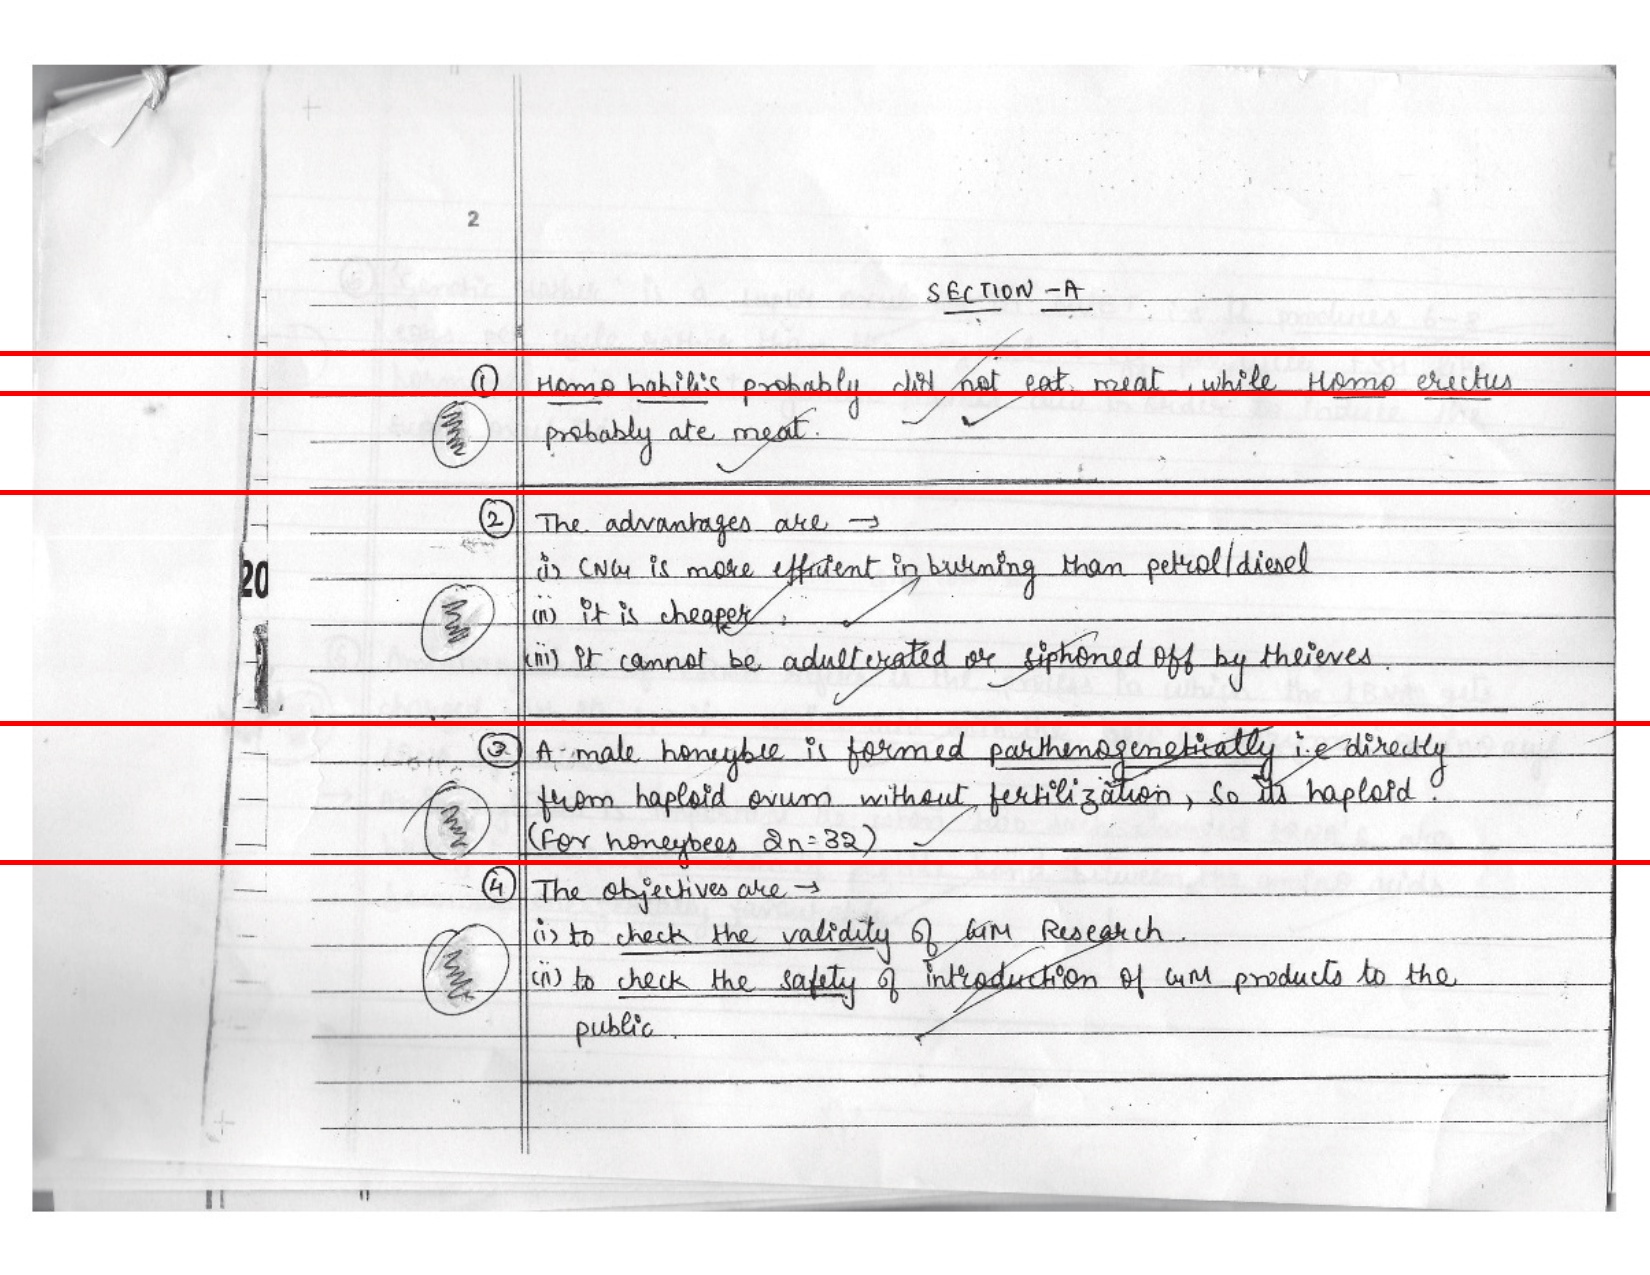 2
SECTION -A
① Homo habilis probably did not eat meat, while Homo erectus
probably ate meat.
② The advantages are →
(i) CNG is more efficient in burning than petrol/diesel
20
(ii) it is cheaper.
(iii) it cannot be adulterated or siphoned off by theieves.
③ A male honeybee is formed parthenogenetically i.e directly
from haploid ovum without fertilization, So its haploid.
(For honeybees 2n=32)
④ The objectives are →
(i) to check the validity of GM Research.
(ii) to check the safety of introduction of GM products to the
public.